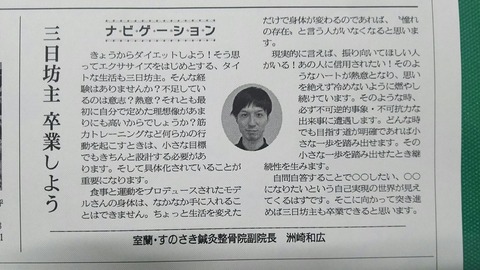 ナビゲーション
三日坊主 卒業しよう
きょうからダイエットしよう！そう思
ってエクササイズをはじめとする、タイ
トな生活も三日坊主。そんな経
験はありませんか？不足してい
るのは意志？熱意？それとも最
初に自分で定めた理想像があま
りにも高いからでしょうか？筋
力トレーニングなど何らかの行
動を起こすときは、小さな目標
でもきちんと設計する必要があ
ります。そして具体化されていることが
重要になります。
食事と運動をプロデュースされたモデ
ルさんの身体は、なかなか手に入れるこ
とはできません。ちょっと生活を変えた
だけで身体が変わるのであれば、“憧れ
の存在〟と言う人がいなくなると思いま
す。
現実的に言えば、振り向いてほしい人
がいる！あの人に信用されたい！そのよ
うなハートが熱意となり、思い
を絶えず冷めないように燃やし
続けています。そのような時、
必ず不可逆的事象・不可抗力な
出来事に遭遇します。どんな時
でも目指す道が明確であれば小
さな一歩を踏み出せます。その
小さな一歩を踏み出せたとき継
続性を生みます。
自問自答することで〇〇したい、〇〇
になりたいという自己実現の世界が見え
てくるはずです。そこに向かって突き進
めば三日坊主も卒業できると思います。
室蘭・すのさき鍼灸整骨院副院長 洲崎和広